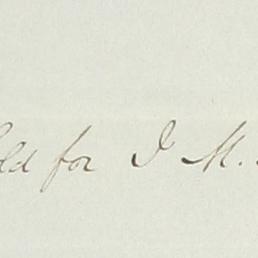 ld for I M.